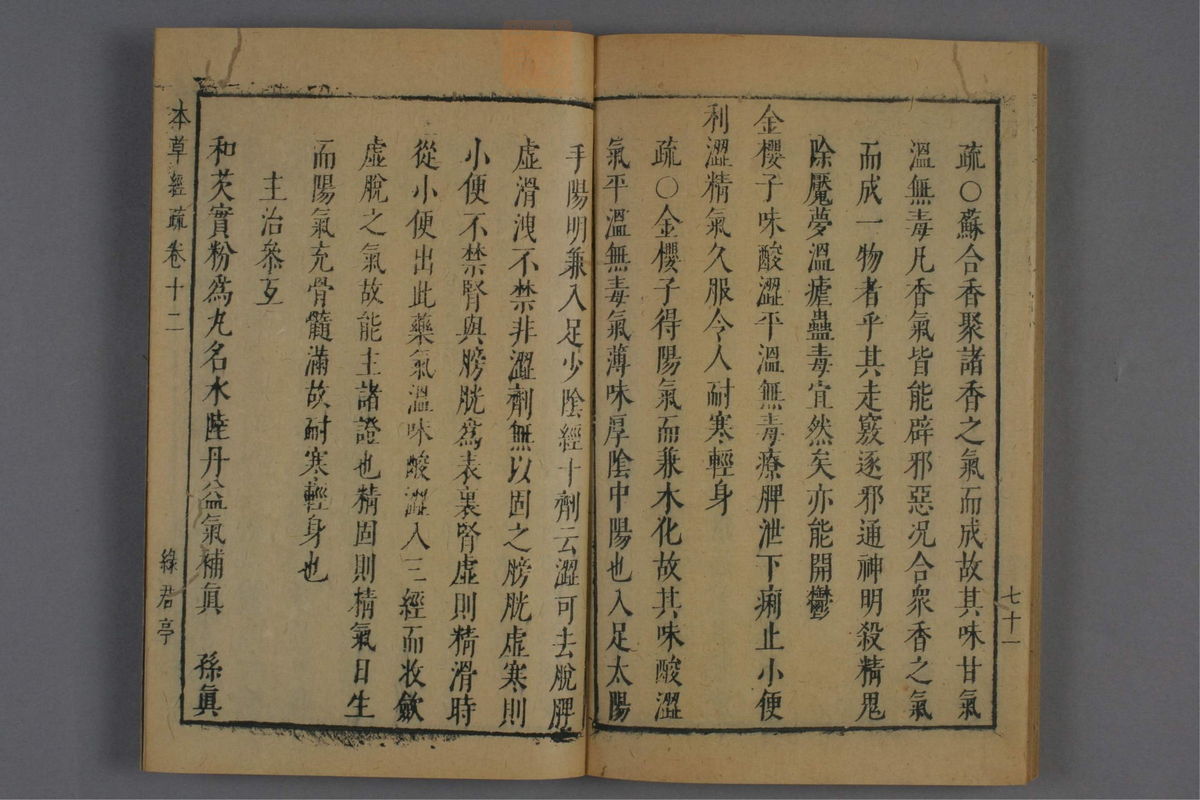 疏○蘇合香聚諸香之氣而成故其味甘氣
溫無毒凡香氣皆能辟邪惡況合衆香之氣
而成一物者乎其走竅逐邪通神明殺精鬼
除魘夢溫瘧蠱毒宜然矣亦能開鬱
金櫻子味酸澀平溫無毒療脾泄下痢止小便
利澀精氣久服令人耐寒輕身
疏○金櫻子得陽氣而兼木化故其味酸澀
氣平溫無毒氣薄味厚陰中陽也入足太陽
七十一
手陽明兼入足少陰經十劑云澀可去脫脾
虛滑洩不禁非澀劑無以固之膀胱虛寒則
小便不禁腎與膀胱爲表裏腎虛則精滑時
從小便出此藥氣溫味酸澀入三經而收斂
虛脫之氣故能主諸證也精固則精氣日生
而陽氣充骨髓滿故耐寒輕身也
主治參互
和芡實粉爲丸名水陸丹益氣補眞　孫眞
本草經疏卷十二　綠君亭